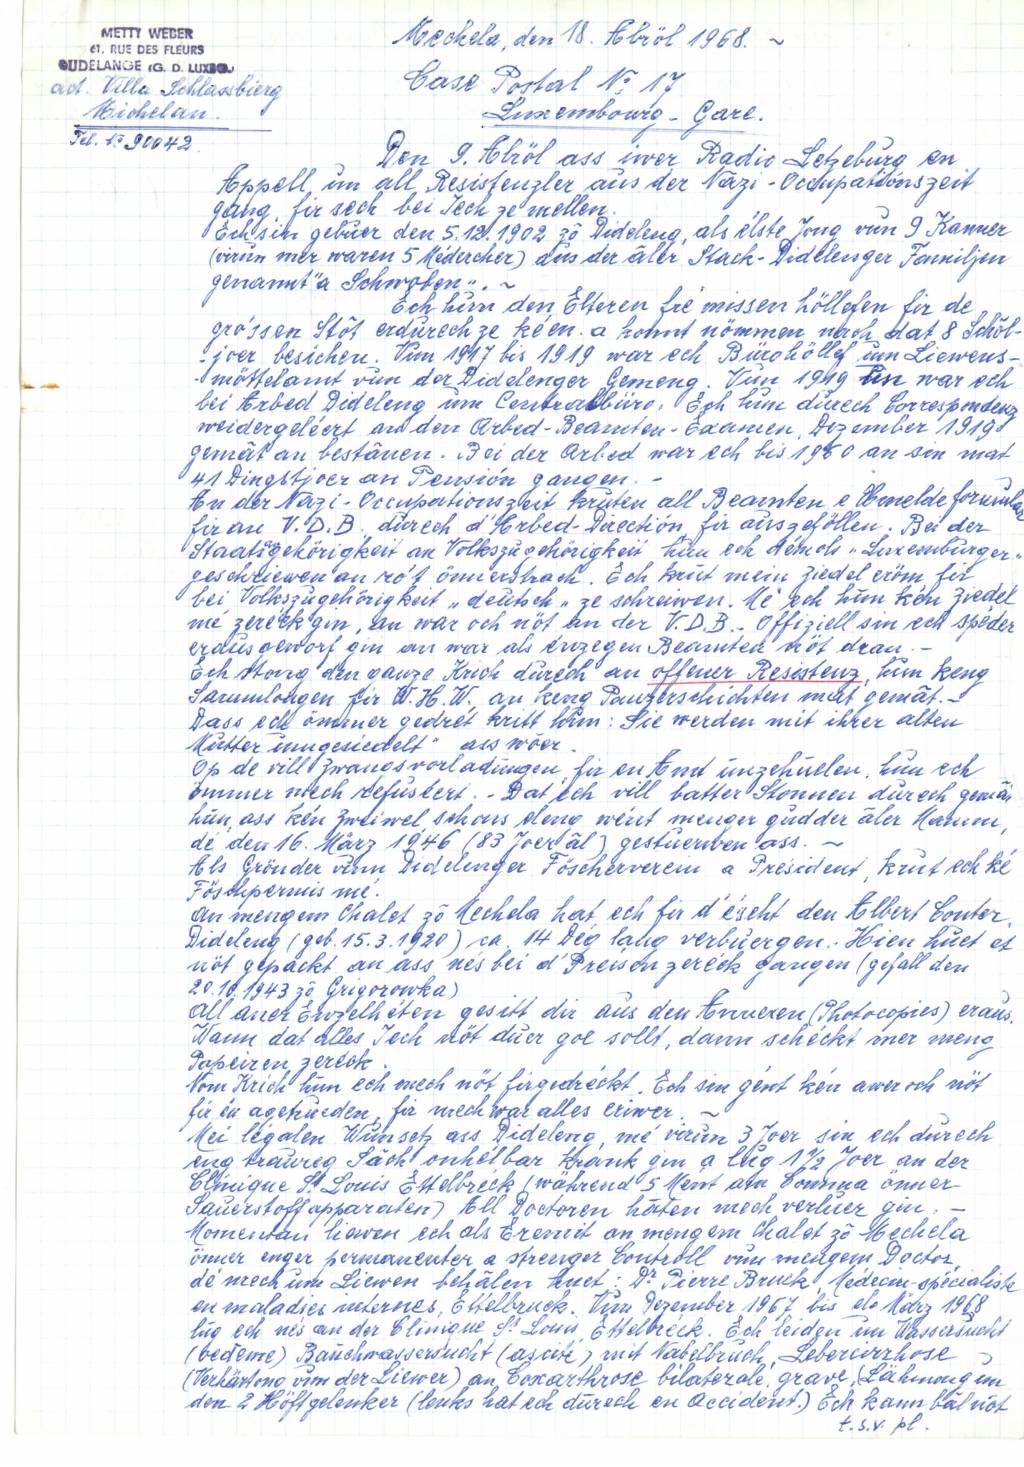 METTY WEBER
61, RUE DES FLEURS
DUDELANGE (G. D. LUXBG.)
act. Villa Schlassbierg
Michelau.
Tel. No 90042
Mechela, den 18. Abröl 1968. ~
Case Postal No 17
Luxembourg-Gare.
Den 9. Abröl ass iwer Radio Letzeburg en
Appell un all Resistenzler aus der Nazi-Occupatiónszeit
gang, fir sech bei Iech ze mellen.
Ech sin gebuer den 5.12.1902 zö Dideleng, als élste Jong vun 9 Kanner
(virun mer waren 5 Médercher) aus der äler Stack-Didelenger Familjen
genannt "a Schwoben". ~
Ech hun den Elteren fré missen höllefen fir de
gróssen Stöt erdurech ze kéen. a konnt nömmen nach dat 8 Schöl-
joer besichen. Vum 1917 bis 1919 war ech Bürohöllef um Liewens-
möttelamt vun der Didelenger Gemeng. Vun 1919 un war ech
bei Arbed Dideleng um Centralbüro. Ech hun durech Correspondenz
weidergeléert an den Arbed-Beamten-Examen, Dezember 1919
gemât an bestânen. Bei der Arbed war ech bis 1960 an sin mat
41 Dingstjoer an Pensión gangen. -
An der Nazi-Occupationszeit kruten all Beamten e Umeldeformular
fir an V.D.B. durech d'Arbed-Direction, fir auszeföllen. Bei der
Staatsgehörigkeit an Volkszugehörigkeit hun ech démols "Luxemburger"
geschriewen an rót önnerstrach. Ech krut mein Ziedel eröm fir
bei Volkszugehörigkeit "deutsch" ze schreiwen. Mé ech hun kén Ziedel
mé zeréck gin, an war och nöt an der V.D.B. - Offiziell sin ech spéder
erausgeworf gin an war als enzegen Beamten nöt dran. -
Ech stong den ganze Krich durech an offener Resistenz, hun keng
Sammlongen fir W.H.W. an keng Panzerschichten mat gemât. -
Dass ech ömmer gedret kritt hun: Sie werden mit ihrer alten
Mutter umgesiedelt" ass wóer.
Op de vill Zwangsvorladungen, fir en Amt unzehuelen, hun ech
ömmer mech refuséert. - Dat ech vill batter Stonnen durech gemât
hun, ass kén Zweiwel schons eleng wéint menger gudder äler Mamm,
dé den 16. März 1946 (83 Joer âl) gestuerwen ass. ~
Als Grönder vum Didelenger Föscherverein a President, krut ech ké
Föschpermis mé.
An mengem Chalet zö Mechela hat ech fir d'éscht den Albert Conter,
Dideleng (geb. 15.3.1920) ca. 14 Dég lang verbuergen. - Hien huet et
nöt gepackt an ass nés bei d'Preisen zeréck gangen (gefall den
20.10.1943 zö Grigorowka)
All aner Enzelhéten gesitt dir aus den Annexen (Photocopies) eraus.
Wann dat alles Iech nöt duer goe sollt, dann schéckt mer meng
Papeiren zeréck.
Vum Krich hun ech mech nöt firgedréckt. Ech sin gént kén awer och nöt
fir én agetrueden, fir mech war alles eriwer. ~
Mei légalen Wunsetz ass Dideleng, mé virun 3 Joer sin ech durech
eng traureg Sâch onhélbar krank gin a lug 1 1/2 Joer an der
Clinique St Louis Ettelbreck (während 5 Mént am Comma önner
Sauerstoffapparaten) All Doctoren haten mech verluer gin. -
Momentan liewen ech als Eremit an mengem Chalet zö Mechela
önner enger permanenter a strenger Controll vun mengem Doctor,
dé mech um Liewen behâlen huet: Dr Pierre Bruck, Médecin-spécialiste
en maladies internes, Ettelbruck. Vum Dezember 1967 bis März 1968
lug ech nés an der Clinique St Louis, Ettelbréck. Ech leiden un Wassersucht
(oedeme) Bauchwassersucht (ascite) mit Nabelbruch, Lebercirrhose
(Verhärtong vun der Liewer) an Coxarthrose bilaterale grave, (Lähmong un
den 2 Höftgelenker (lenks hat ech durech en Accident.) Ech kann bâl nöt
t.s.v.pl.